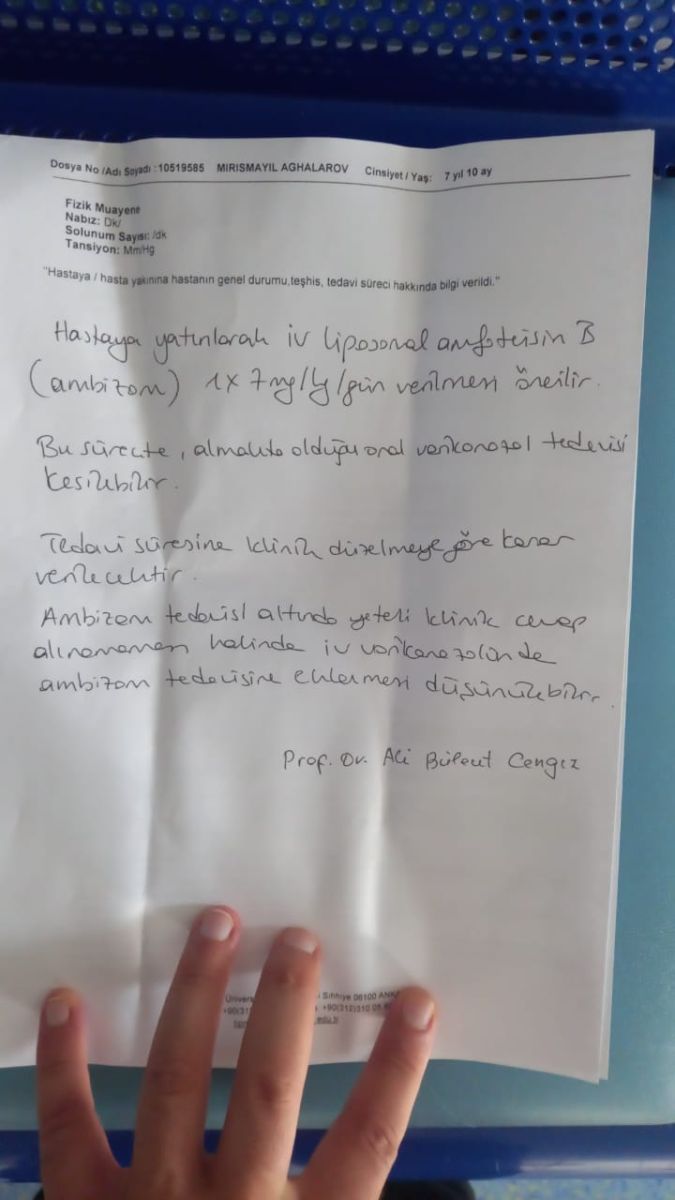 Dosya No /Adı Soyadı :10519585 MIRISMAYIL AGHALAROV Cinsiyet / Yaş: 7 yıl 10 ay
Fizik Muayene
Nabız: Dk/
Solunum Sayısı: /dk
Tansiyon: Mm/Hg
"Hastaya / hasta yakınına hastanın genel durumu,teşhis, tedavi süreci hakkında bilgi verildi."
Hastaya yatırılarak iv lipozomal amfoterisin B
(ambizom) 1x7mg/kg/gün verilmesi önerilir.
Bu süreçte, almakta olduğu oral vorikonazol tedavisi
kesilebilir.
Tedavi süresine klinik düzelmeye göre karar
verilecektir.
Ambizom tedavisi altında yeterli klinik cevap
alınamaması halinde iv vorikonazolün de
ambizom tedavisine eklenmesi düşünülebilir.
Prof. Dr. Ali Bülent Cengiz
Sıhhiye 06100
+90(312)310 05